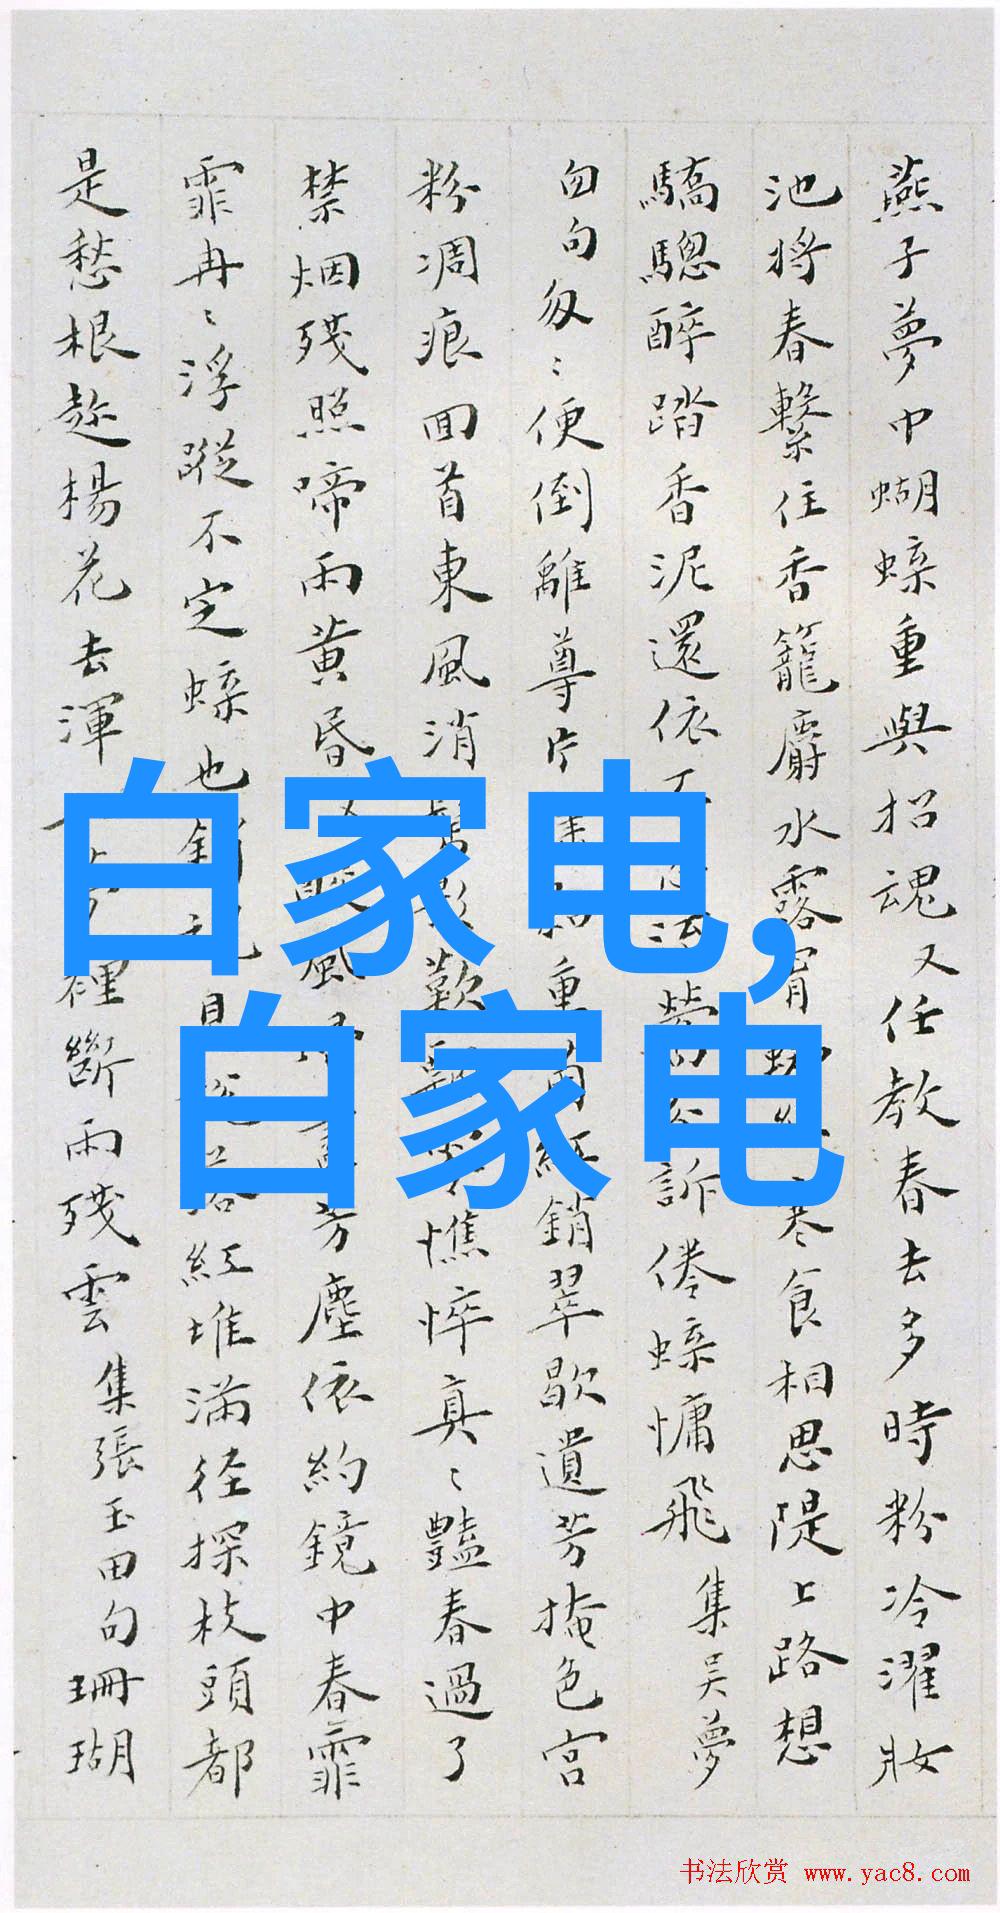 燕子夢中蝴蝶重與招魂又任教春去多時粉冷濯妝
池將春繫住香籠麝水露寒食相思隄上路想
驕驄醉踏香泥還依訴倦蝶慵飛 集吳夢
句匆〻便倒離尊片重紅銷翠歇遺芳掩色宮
粉凋痕回首東風消鬢影歎憔悴真〻豔春過了
禁烟殘照啼雨黃昏風芳塵依約鏡中春霏
霏冉〻浮蹤不定蝶也落紅堆滿徑探枝頭都
是愁根趁楊花去渾裡斷雨殘雲 集張玉田句珊瑚
白家电,
白家电
书法欣赏 www.yac8.com